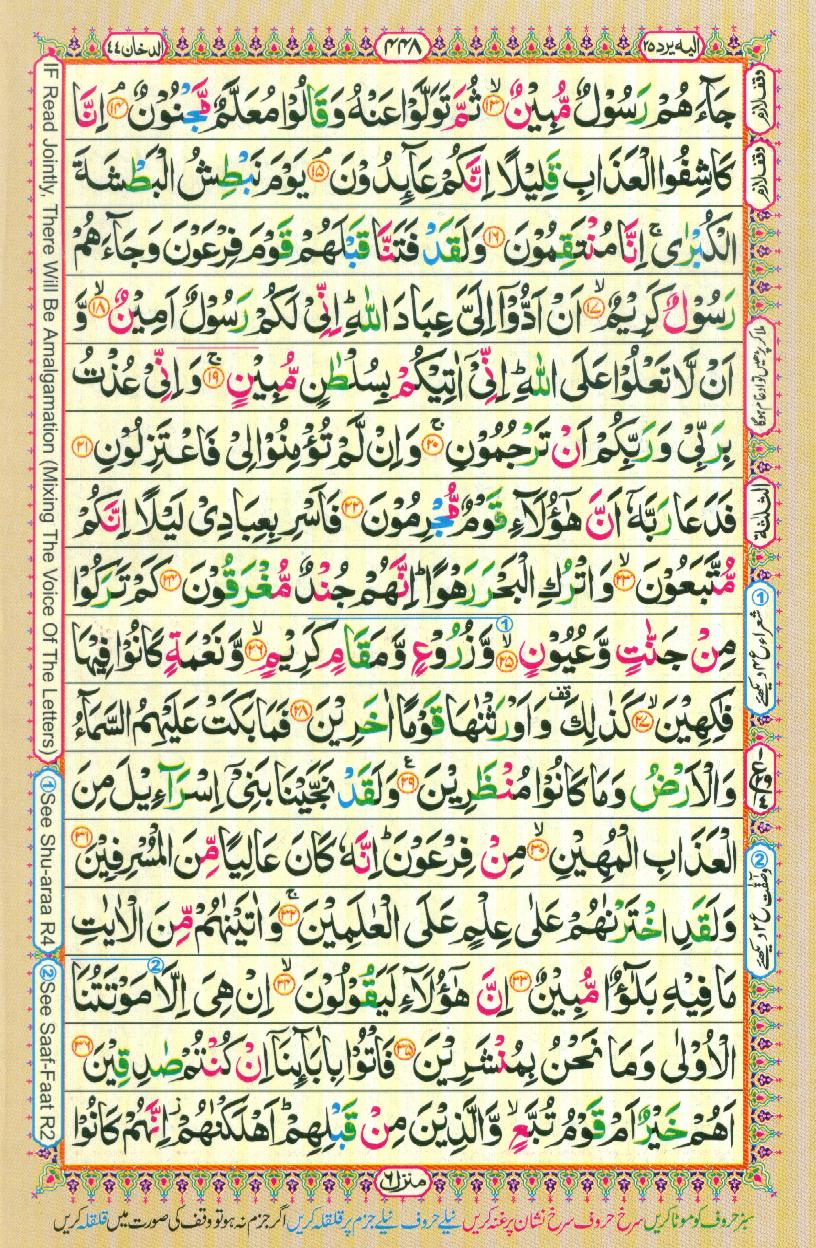 الیه یرد ٢٥
٤٤٨
الدخان ٤٤
جَآءَهُمْ رَسُوْلٌ مُّبِيْنٌ ۙ‏﴿۱۳﴾ ثُمَّ تَوَلَّوْا عَنْهُ وَقَالُوْا مُعَلَّمٌ مَّجْنُوْنٌ ۘ‏﴿۱۴﴾ اِنَّا
كَاشِفُوا الْعَذَابِ قَلِيْلًا اِنَّكُمْ عَآٮِٕدُوْنَ ۘ‏﴿۱۵﴾ يَوْمَ نَبْطِشُ الْبَطْشَةَ
الْكُبْرٰى ۚ اِنَّا مُنْتَقِمُوْنَ‏﴿۱۶﴾ وَلَقَدْ فَتَنَّا قَبْلَهُمْ قَوْمَ فِرْعَوْنَ وَجَآءَهُمْ
رَسُوْلٌ كَرِيْمٌ ۙ‏﴿۱۷﴾ اَنْ اَدُّوْۤا اِلَىَّ عِبَادَ اللّٰهِ ؕ اِنِّىْ لَكُمْ رَسُوْلٌ اَمِيْنٌ ۙ‏﴿۱۸﴾ وَّ
اَنْ لَّا تَعْلُوْا عَلَى اللّٰهِ ؕ اِنِّىْۤ اٰتِيْكُمْ بِسُلْطٰنٍ مُّبِيْنٍ ۚ‏﴿۱۹﴾ وَاِنِّىْ عُذْتُ
بِرَبِّىْ وَرَبِّكُمْ اَنْ تَرْجُمُوْنِ ۚ‏﴿۲۰﴾ وَاِنْ لَّمْ تُؤْمِنُوْا لِىْ فَاعْتَزِلُوْنِ‏﴿۲۱﴾
فَدَعَا رَبَّهٗۤ اَنَّ هٰٓؤُلَآءِ قَوْمٌ مُّجْرِمُوْنَ‏﴿۲۲﴾ فَاَسْرِ بِعِبَادِىْ لَيْلًا اِنَّكُمْ
مُّتَّبَعُوْنَ ۙ‏﴿۲۳﴾ وَاتْرُكِ الْبَحْرَ رَهْوًا ؕ اِنَّهُمْ جُنْدٌ مُّغْرَقُوْنَ‏﴿۲۴﴾ كَمْ تَرَكُوْا
مِنْ جَنّٰتٍ وَّعُيُوْنٍ ۙ‏﴿۲۵﴾ ① وَّزُرُوْعٍ وَّمَقَامٍ كَرِيْمٍ ۙ‏﴿۲۶﴾ وَّنَعْمَةٍ كَانُوْا فِيْهَا
فٰكِهِيْنَ ۙ‏﴿۲۷﴾ كَذٰلِكَ قف وَاَوْرَثْنٰهَا قَوْمًا اٰخَرِيْنَ‏﴿۲۸﴾ فَمَا بَكَتْ عَلَيْهِمُ السَّمَآءُ
وَالْاَرْضُ وَمَا كَانُوْا مُنْظَرِيْنَ ع‏﴿۲۹﴾ وَلَقَدْ نَجَّيْنَا بَنِىْۤ اِسْرَآءِيْلَ مِنَ
الْعَذَابِ الْمُهِيْنِ ۙ‏﴿۳۰﴾ مِنْ فِرْعَوْنَ ؕ اِنَّهٗ كَانَ عَالِيًا مِّنَ الْمُسْرِفِيْنَ‏﴿۳۱﴾
وَلَقَدِ اخْتَرْنٰهُمْ عَلٰى عِلْمٍ عَلَى الْعٰلَمِيْنَ ۚ‏﴿۳۲﴾ وَاٰتَيْنٰهُمْ مِّنَ الْاٰيٰتِ
مَا فِيْهِ بَلٰٓؤٌا مُّبِيْنٌ‏﴿۳۳﴾ اِنَّ هٰٓؤُلَآءِ لَيَقُوْلُوْنَ ۙ‏﴿۳۴﴾ اِنْ هِىَ اِلَّا ② مَوْتَتُنَا
الْاُوْلٰى وَمَا نَحْنُ بِمُنْشَرِيْنَ‏﴿۳۵﴾ فَاْتُوْا بِاٰبَآٮِٕنَاۤ اِنْ كُنْتُمْ صٰدِقِيْنَ‏﴿۳۶﴾
اَهُمْ خَيْرٌ اَمْ قَوْمُ تُبَّعٍ ۙ وَّالَّذِيْنَ مِنْ قَبْلِهِمْ ؕ اَهْلَكْنٰهُمْ ز اِنَّهُمْ كَانُوْا
منزل ٦
وقف لازم
وقف لازم
ملا کر پڑھیں تو ادغام ہوگا
الثلثة
① شعراء ع ۴ دیکھئے
② وصّٰفّٰت ع ۲ دیکھئے
IF Read Jointly, There Will Be Amalgamation (Mixing The Voice Of The Letters)
①See Shu-araa R4
②See Saaf-Faat R2
سبز حروف کو موٹا کریں سرخ حروف سرخ نشان پر غنہ کریں نیلے حروف نیلے جزم پر قلقلہ کریں اگر جزم نہ ہو تو وقف کی صورت میں قلقلہ کریں